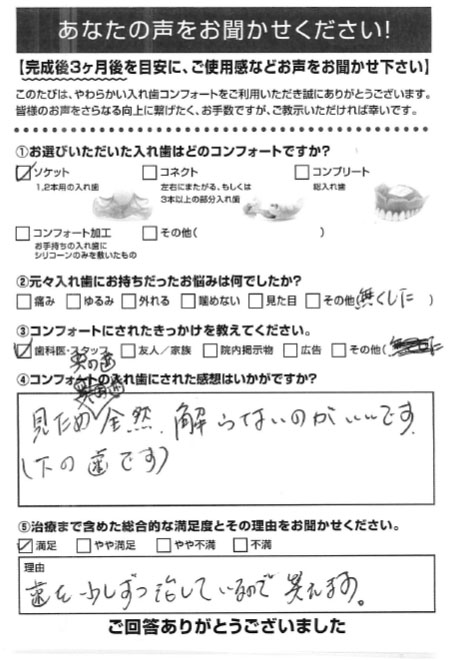 あなたの声をお聞かせください!
【完成後3ヶ月後を目安に、ご使用感などお声をお聞かせ下さい】
このたびは、やわらかい入れ歯コンフォートをご利用いただき誠にありがとうございます。
皆様のお声をさらなる向上に繋げたく、お手数ですが、ご教示いただければ幸いです。
①お選びいただいた入れ歯はどのコンフォートですか?
ソケット
1,2本用の入れ歯
コネクト
左右にまたがる、もしくは
3本以上の部分入れ歯
コンプリート
総入れ歯
コンフォート加工
お手持ちの入れ歯に
シリコーンのみを敷いたもの
その他( )
②元々入れ歯にお持ちだったお悩みは何でしたか?
痛み ゆるみ 外れる 噛めない 見た目 その他(無くした )
③コンフォートにされたきっかけを教えてください。
歯科医・スタッフ 友人/家族 院内掲示物 広告 その他( )
④コンフォートの入れ歯にされた感想はいかがですか?
奥の歯
見ため 全然、解らないのがいいです
(下の歯です)
⑤治療まで含めた総合的な満足度とその理由をお聞かせください。
満足 やや満足 やや不満 不満
理由
歯を少しずつ治しているので笑えます。
ご回答ありがとうございました